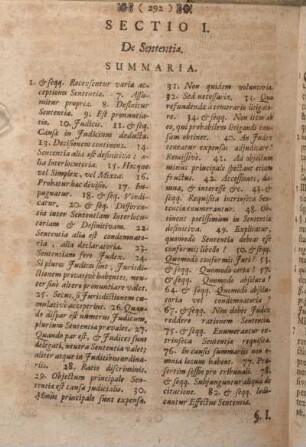 ( 292 )
SECTIO I.
De Sententia.
SUMMARIA.
1. & seqq. Recensentur varia acceptiones
Sententiæ. 7. Assumitur
propriè. 8. Definitur
Sententia. 9. Est pronuntiatio.
10. Judicis. 11. & seq.
Causæ in Judicium deductæ.
13. Decisionem continens. 14.
Sententia alia est definitiva: alia
Interlocutoria. 15. Hæcque
vel Simplex, vel Mixta. 16.
Probatur hæc divisio. 17. Impugnatur.
18. & seq. Vindicatur.
20. & seq. Differentia
inter Sententiam Interlocutoriam
& Definitivam. 22.
Sententia alia est condemnatoria,
alia declaratoria. 23.
Sententiam fert Judex. 24.
Si plures Judices sint,
alter pronuntiare valet.
25. Secus, si Jurisdictionem cumulativè
acceperint. 26. Quando
dispar est numerus Judicum,
plurium Sententia prævalet. 27.
Quando par est, & Judices sunt
delegati, neutra Sententia valet;
aliter atque in Judicibus ordinariis.
28. Ratio discriminis.
29. Objectum principale Sententiæ
est causa judicialis. 30.
Minus principale sunt expensæ.
31. Non quidem voluntariæ.
32. Sed necessariæ. 33. Quæ
refundendæ à temerario litigatore.
34. & seqq. Non item ab
eo, qui probabilem litigandi causam
obtinet. 40. An Judex
teneatur expensas adjudicare?
Remissivè. 41. Ad objectum
minus principale spectant etiam
fructus. 42. Accessiones, damna,
& interesse &c. 43. &
seqq. Requisita intrinseca Sententiæ
enumerantur. 48. Obtinent
potissimùm in Sententia
definitiva. 49. Explicatur,
quomodo Sententia debeat esse
conformis libello? 50. & seqq.
Quomodo conformis Juri?
& seqq. Quomodo certa?
& seqq. Quomodo absoluta?
64. & seqq. Quomodo absolutoria
vel condemnatoria?
& seqq. Non debet Judex
reddere rationem Sententiæ.
75. & seqq. Enumerantur extrinseca
Sententiæ requisita.
76. In causis summariis non omnia
locum habent. 77. Profertur
sesse pro tribunali. 78.
& seqq. Subjunguntur aliqua de
citatione. 82. & seqq.
Effectus Sententiæ.
§. I.